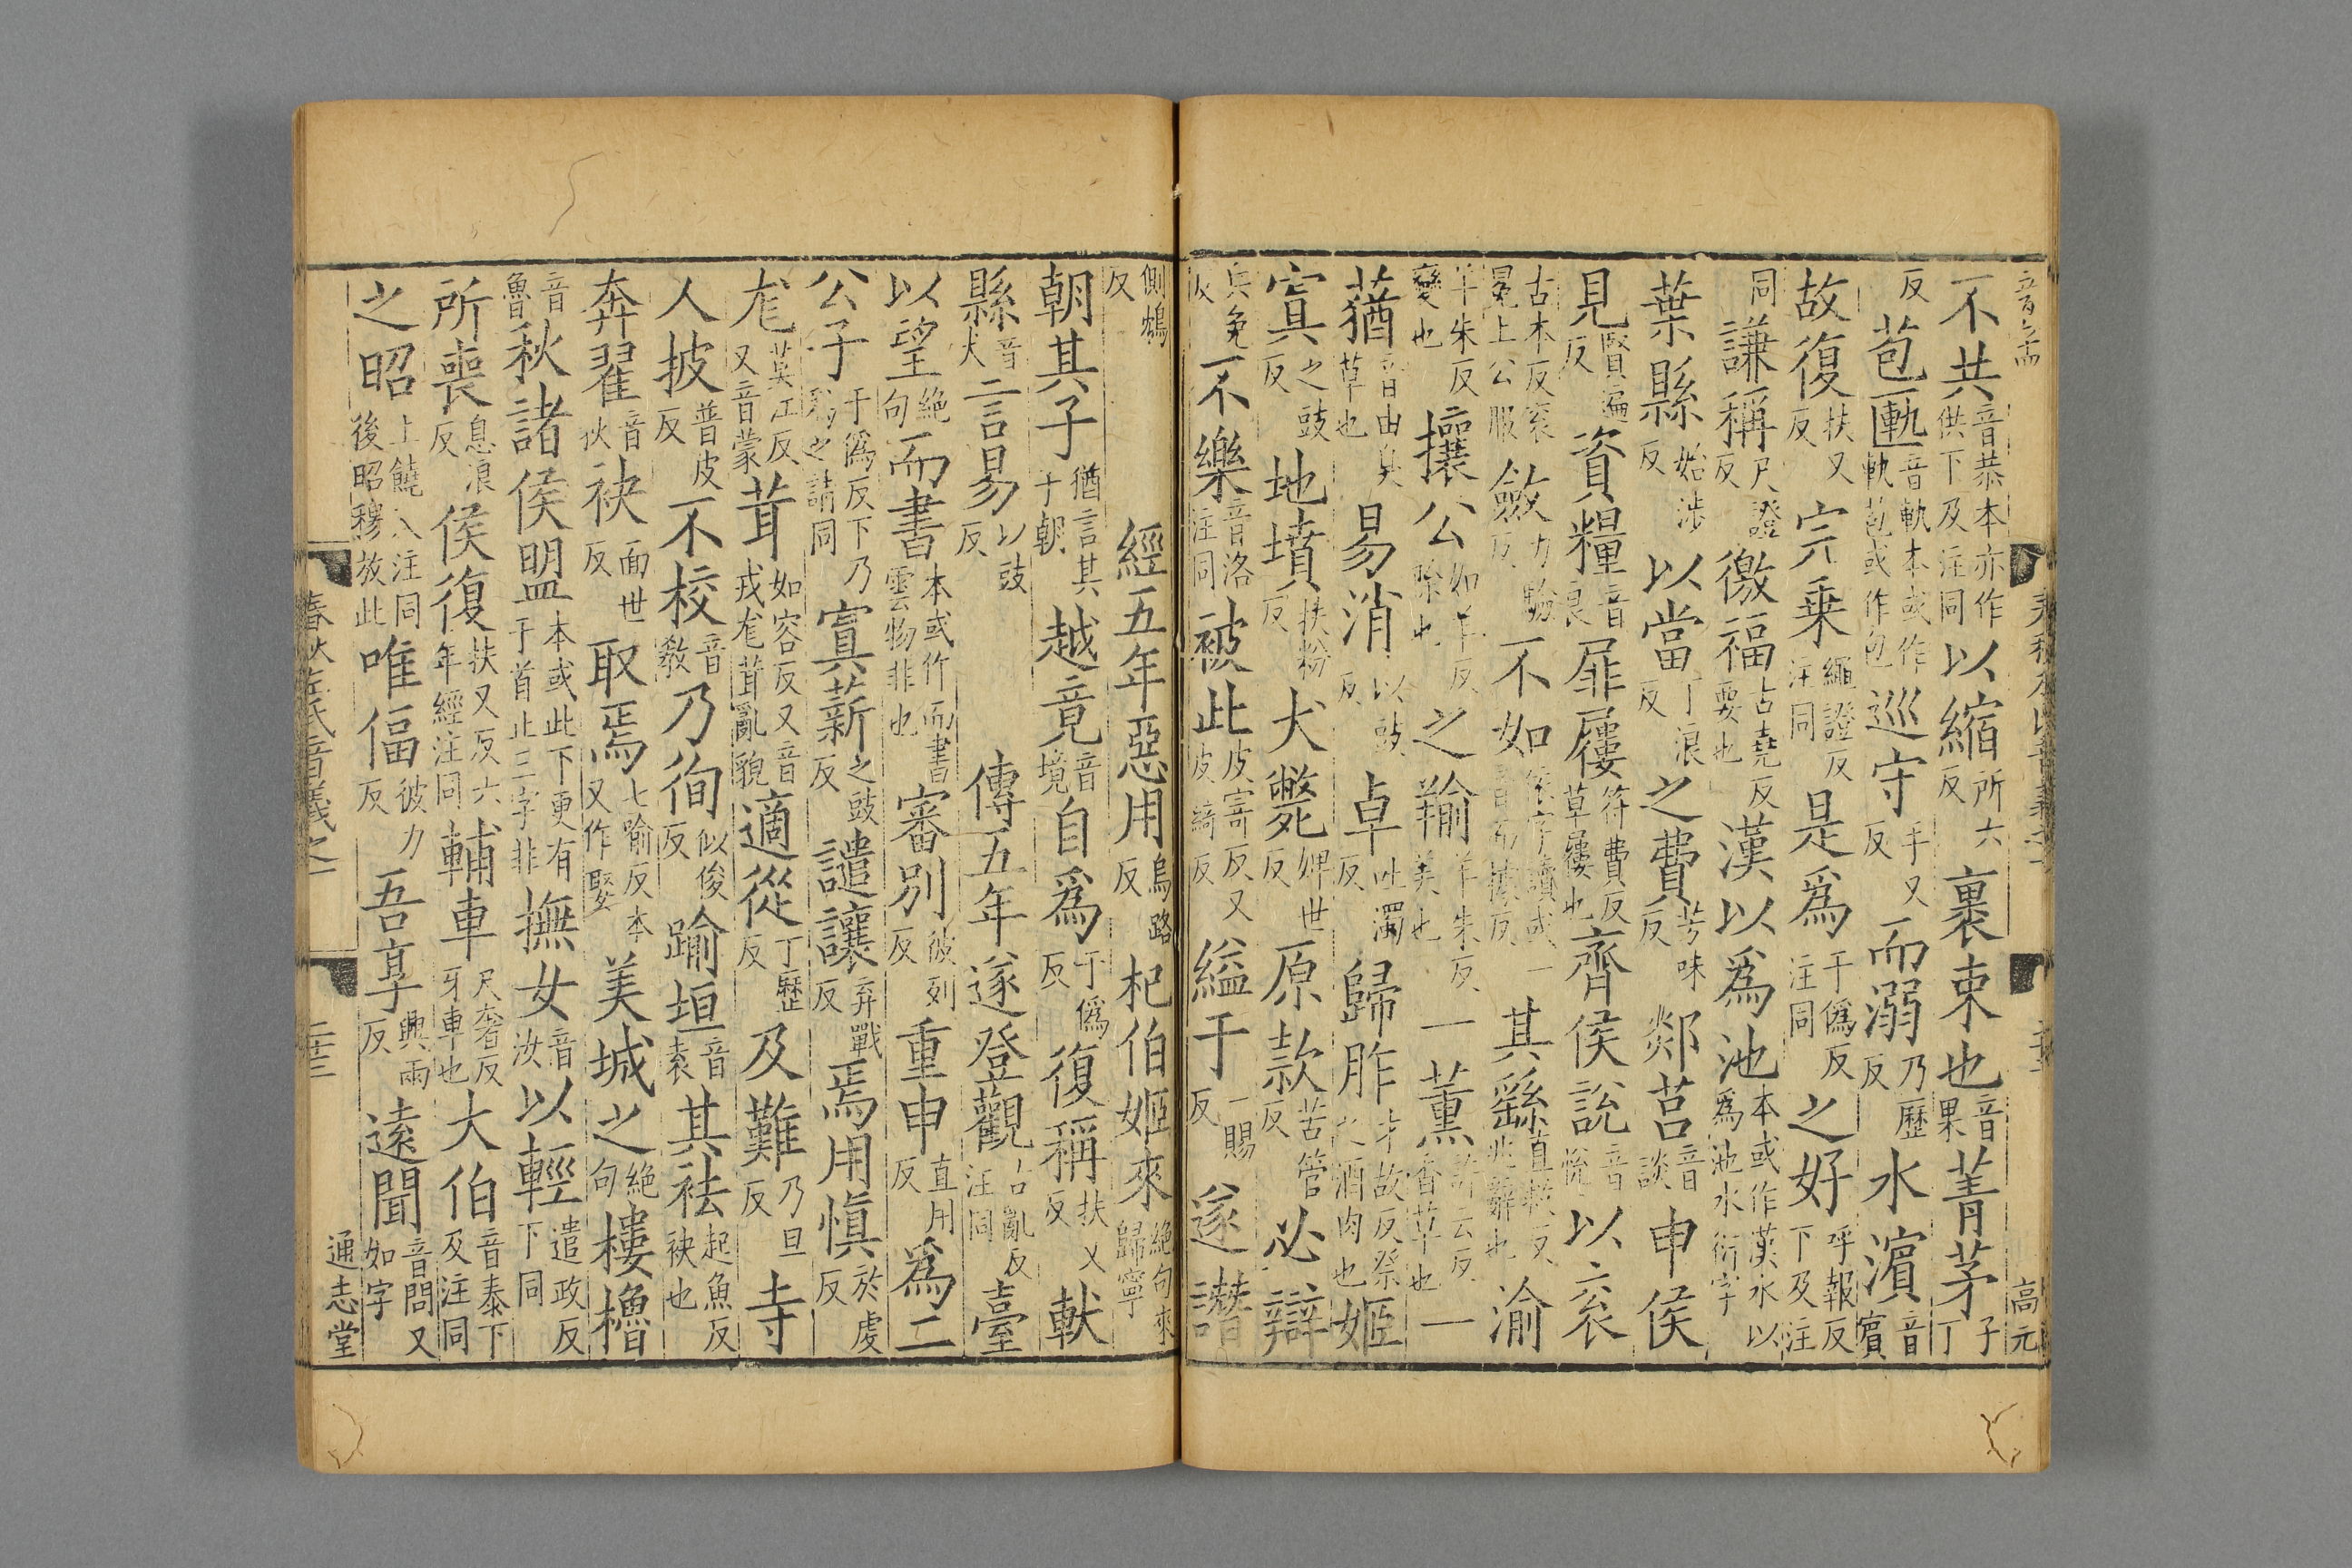 不共音恭本亦作供下及注同以縮所六反裹束也音果菁茅子丁
反苞匭音軌本或作軌苞或作包巡守手又反而溺乃歷反水濱音賓
故復扶又反完乗繩證反注同是爲于僞反注同之好呼報反下及注
同謙稱尺證反徼福古堯反要也漢以爲池本或作漢水以爲池水衍字
葉縣始涉反以當丁浪反之費芳味反郯莒音談申侯
見賢遍反資糧音良屝屨符費反草屨也齊侯說音悅以衮
古本反衮冕上公服斂力驗反不如其繇直救反兆辭也渝
羊朱反變也攘公如羊反除也之羭羊朱反美也一薰許云反香草也一
蕕音由臭草也易消以豉反卓吐濁反歸胙才故反祭之酒肉也姬
寘之豉反地墳扶粉反犬斃婢世反原款苦管反必辯
兵免反不樂音洛注同被此皮寄反又皮綺反縊于一賜反遂譖
側鴆反
經五年惡用烏路反杞伯姬來絶句來歸寧
朝其子猶言其子朝越竟音境自爲于僞反復稱扶又反軑
縣音犬言易以豉反
傳五年遂登觀古亂反注同臺
以望絶句而書本或作而書雲物非也審别彼列反重申直用反爲二
公子于僞反下乃爲之請同寘薪之豉反譴讓弃戰反焉用愼於虔反
尨莫江反又音蒙茸如容反又音戎尨茸亂貌適從丁歷反及難乃旦反寺
人披普皮反不校音敎乃徇似俊反踰垣音袁其袪起魚反袂也
奔翟音狄袂面世反取焉七喻反本又作娶美城之絶句樓櫓
音魯秋諸侯盟本或此下更有于首止三字非撫女音汝以輕遣政反下同
所喪息浪反侯復扶又反六年經注同輔車尺奢反牙車也大伯音泰下及注同
之昭上饒反注同後昭穆放此唯偪彼力反吾享興兩反遠聞音問又如字
春秋左氏音義之一
通志堂
高元